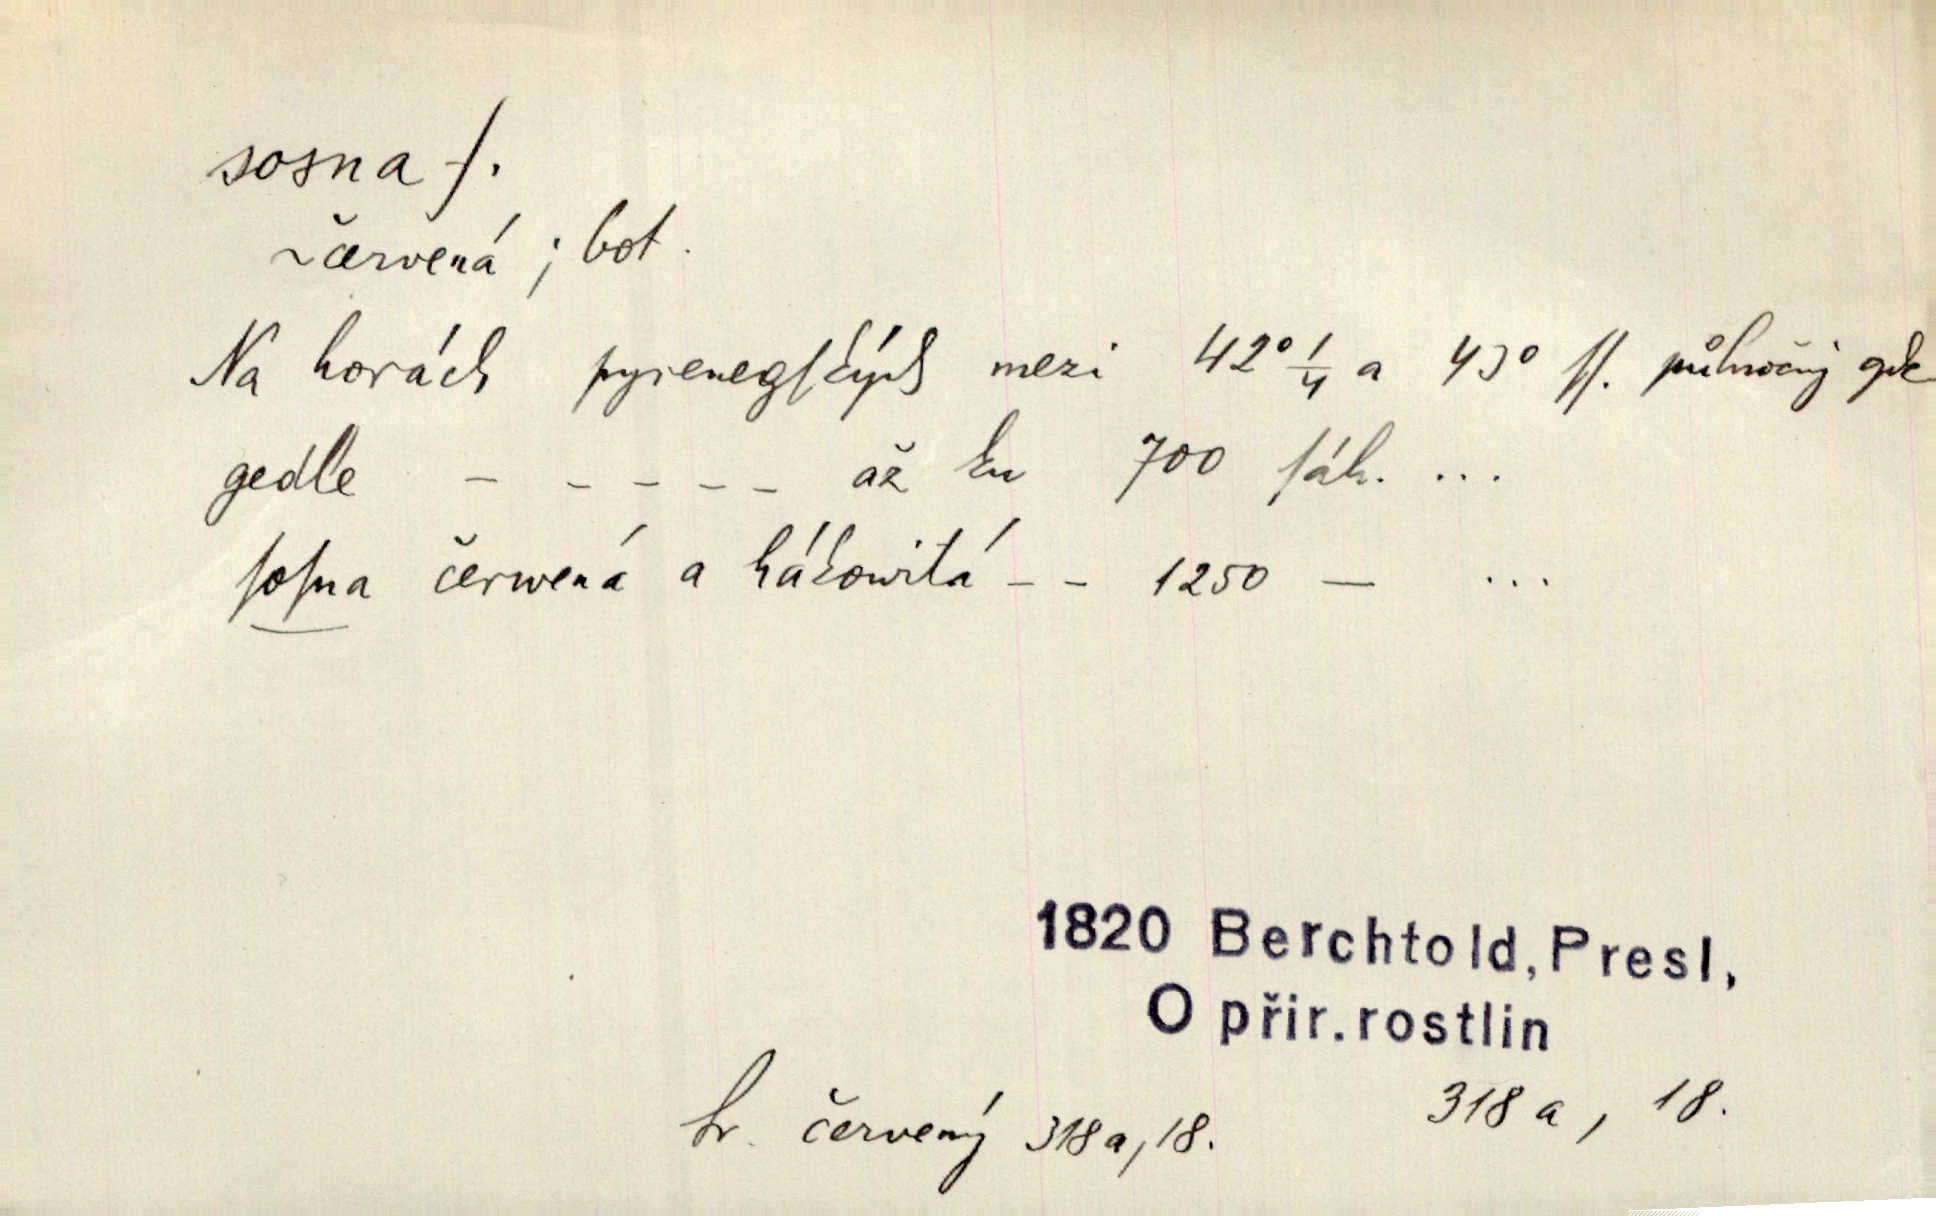 sosna f.
~červená ; bot.
Na horách pyrenegſkých mezi 42° 1/4 a 43° ſſ. půlnočnj gde
gedle - - - - - až ku 700 ſáh. ...
ſoſna čerwená a hákowitá - - 1250 — ...
1820 Berchtold, Presl,
O přir. rostlin
318 a, 18.
červený 318 a, 18.